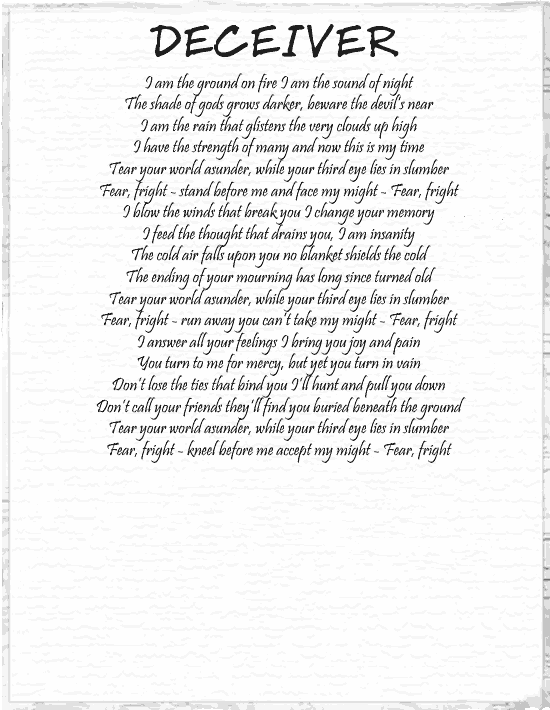 DECEIVER
I am the ground on fire I am the sound of night
The shade of gods grows darker, beware the devil's near
I am the rain that glistens the very clouds up high
I have the strength of many and now this is my time
Tear your world asunder, while your third eye lies in slumber
Fear, fright ~ stand before me and face my might ~ Fear, fright
I blow the winds that break you I change your memory
I feed the thought that drains you, I am insanity
The cold air falls upon you no blanket shields the cold
The ending of your mourning has long since turned old
Tear your world asunder, while your third eye lies in slumber
Fear, fright ~ run away you can't take my might ~ Fear, fright
I answer all your feelings I bring you joy and pain
You turn to me for mercy, but yet you turn in vain
Don't lose the ties that bind you I'll hunt and pull you down
Don't call your friends they'll find you buried beneath the ground
Tear your world asunder, while your third eye lies in slumber
Fear, fright ~ kneel before me accept my might ~ Fear, fright